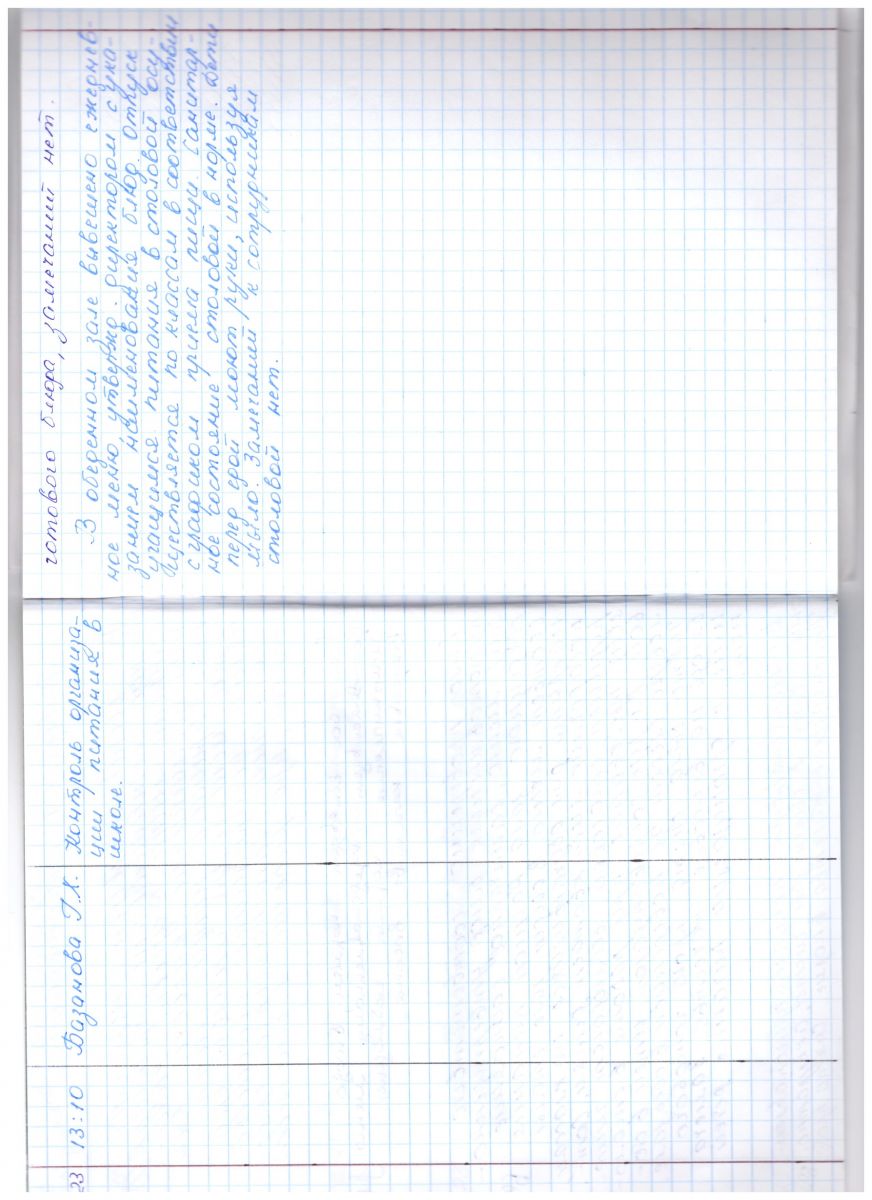 23 13:10 Базанова Г.Х. Контроль организа-
ции питания в
школе.
готового блюда, замечаний нет.
В обеденном зале вывешено ежеднев-
ное меню, утвержд. директором с ука-
занием наименования блюд. Отпуск
учащимся питания в столовой осу-
ществляется по классам в соответствии
с графиком приема пищи. Санитар-
ное состояние столовой в норме. Дети
перед едой моют руки, используя
мыло. Замечаний к сотрудникам
столовой нет.